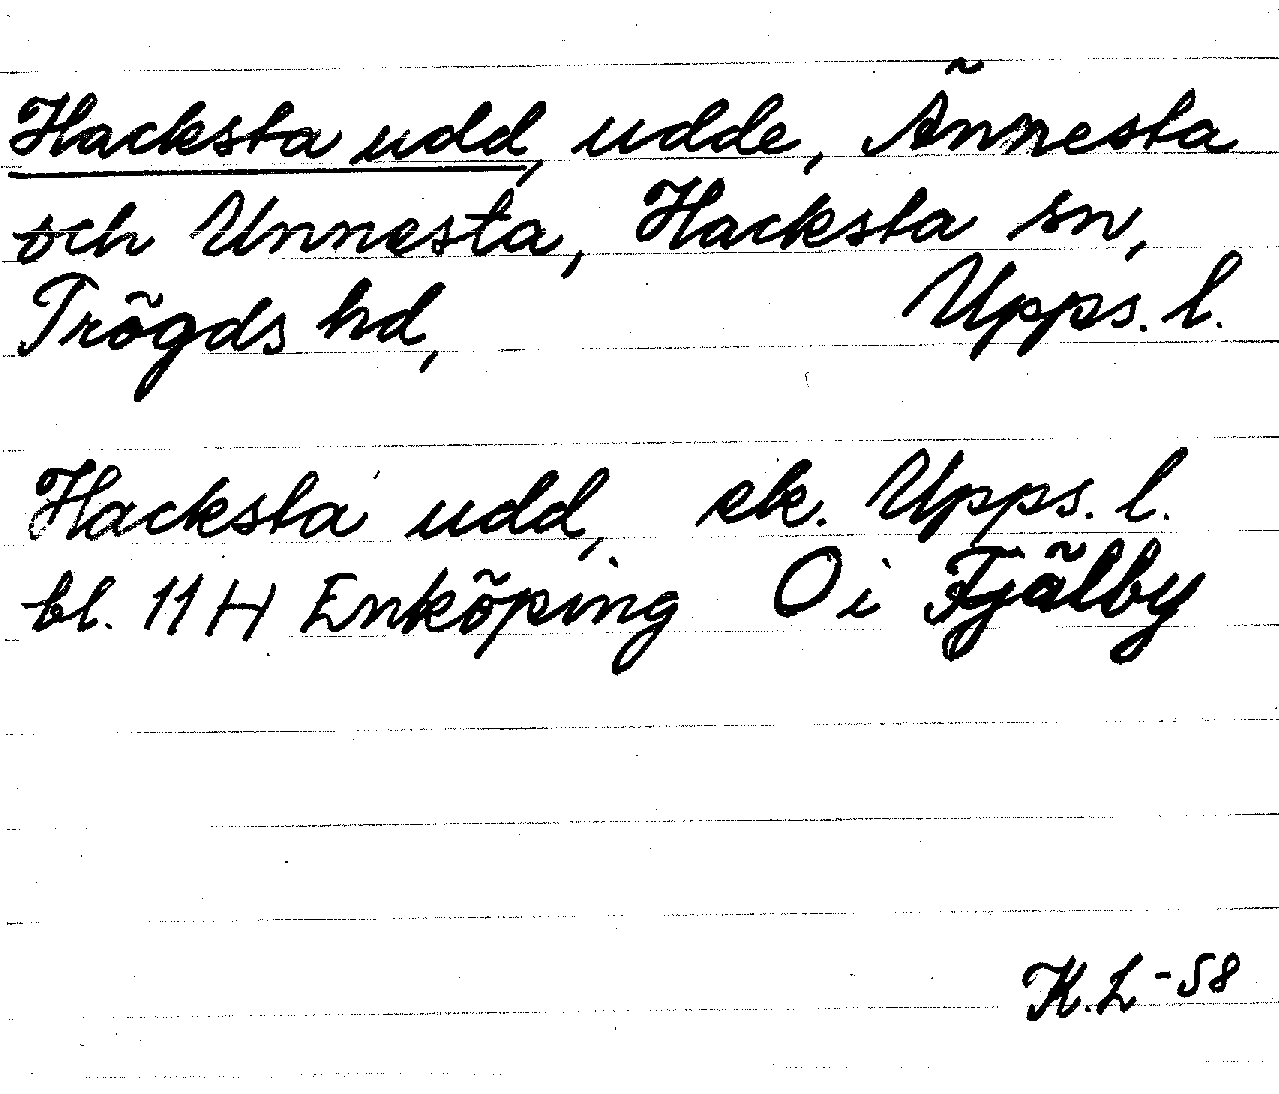 Hacksta udd, udde, Ännesta
och Unnesta, Hacksta sn,
Trögds hd, Upps. l.
Hacksta udd, ek. Upps. l.
bl. 11 H Enköping O i Fjälby
K.L -58